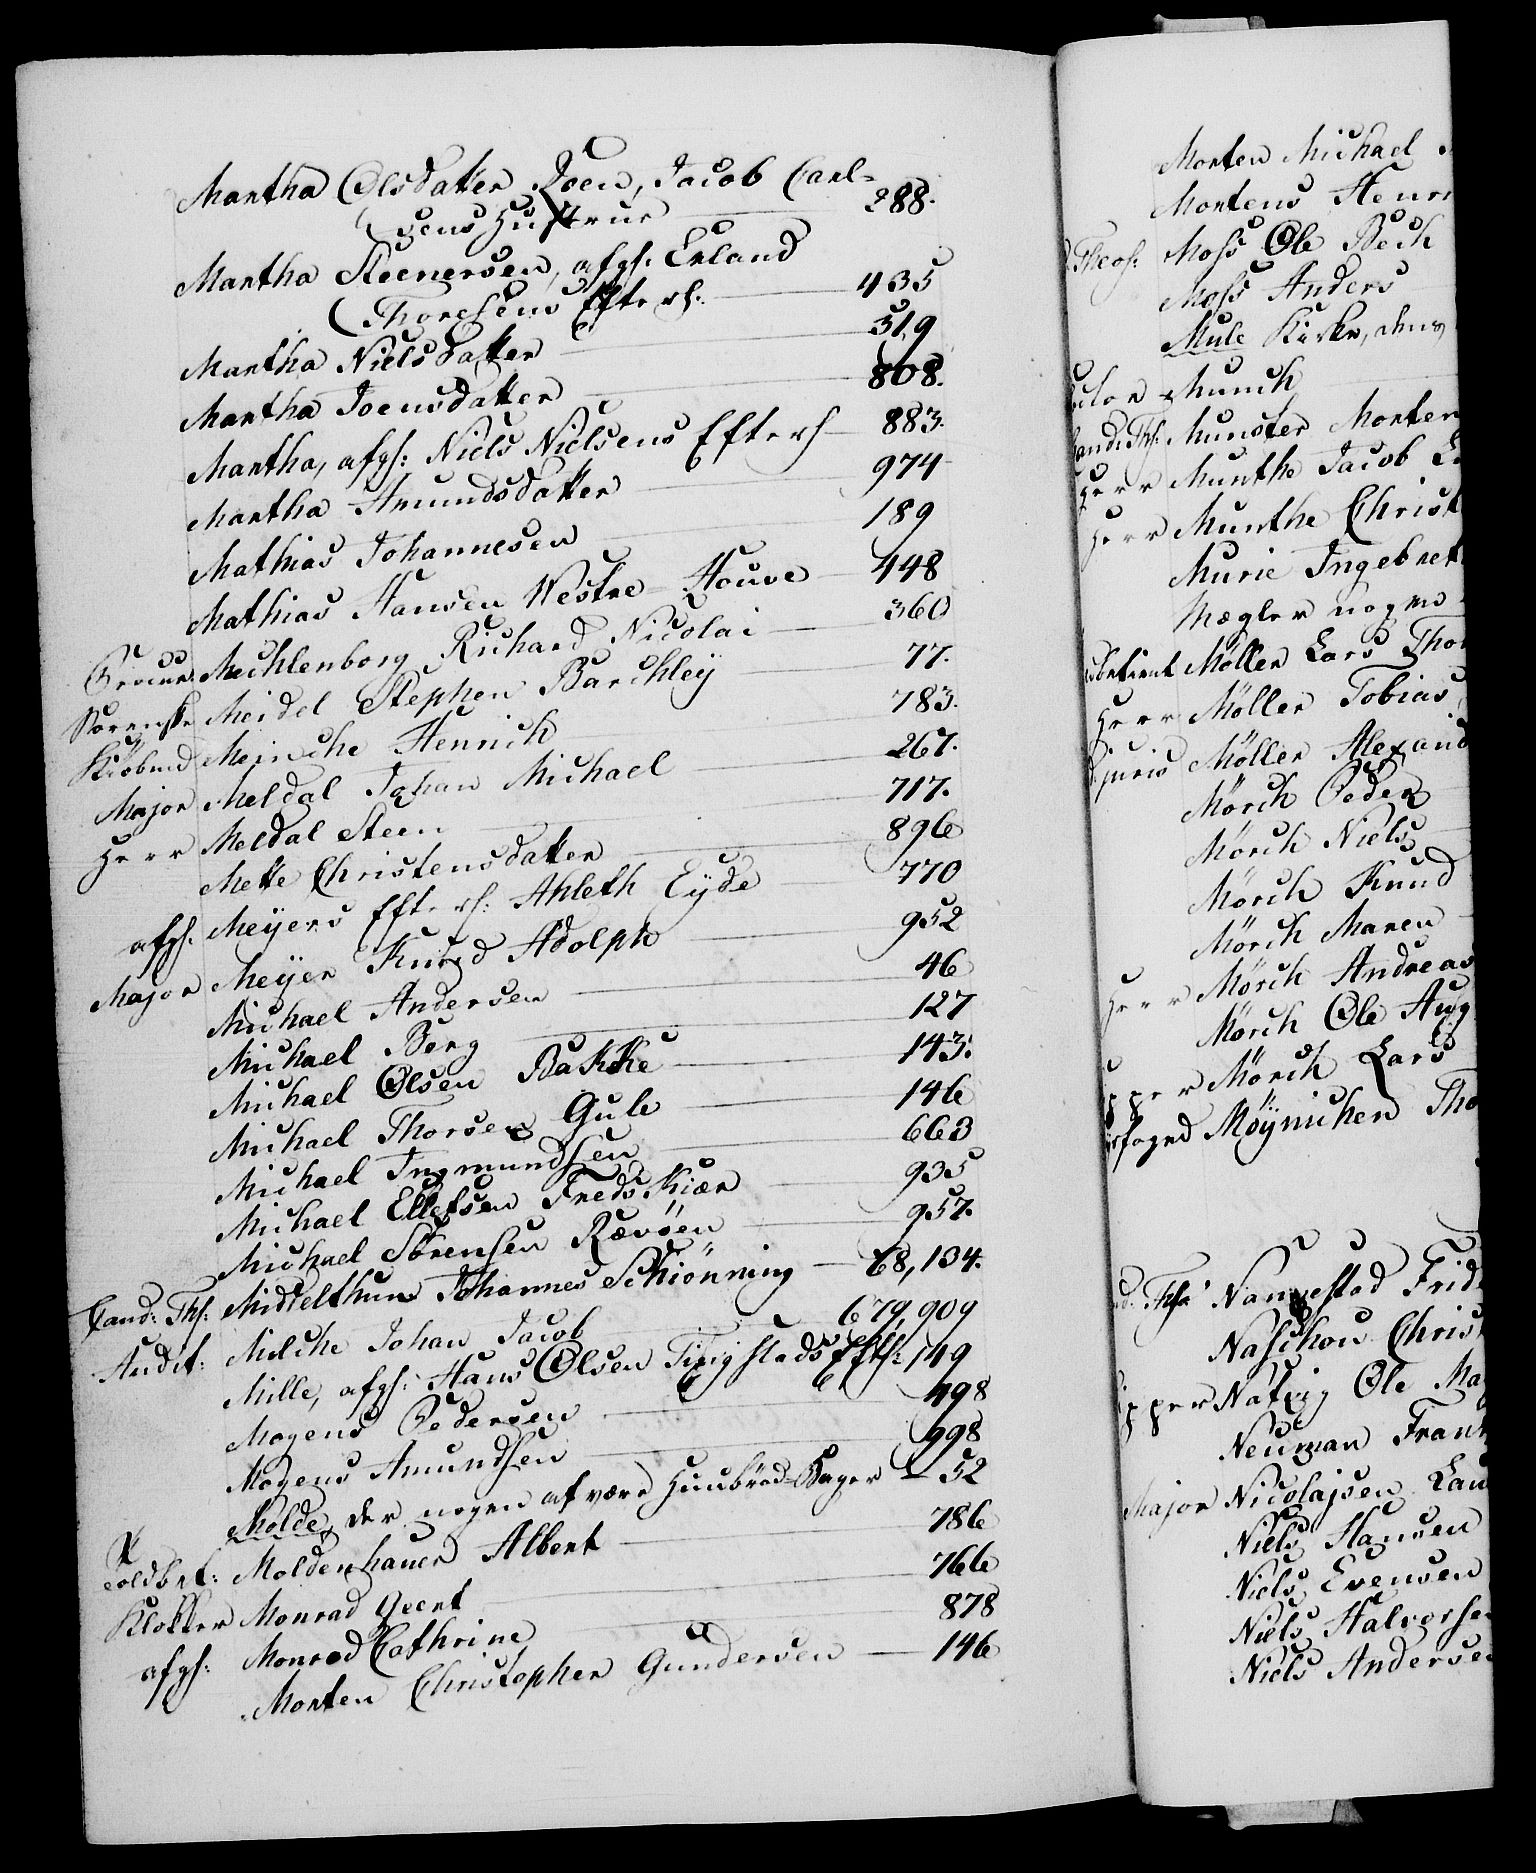 Martha Olsdatter Roen, Jacob Carl-
sens Hustrue 288.
Martha Steenersen, afgh: Erland
Thoresens Efterl: 435
Martha Nielsdatter 519
Martha Joensdatter 808.
Martha, afgh: Niels Nielsens Efterl 883.
Martha Amundsdatter 974
Mathias Johannesen 189
Mathias Hansen Westre Houve 448
Procur. Mechlenborg Richard Nicolai 360
Sorenskr Meidel Stephen Barchley 77.
Kiøbmd Meinche Henrich 783.
Major Meldal Johan Michael 267.
Herr Meldal Steen 717.
Mette Christensdatter 896
afgh. Meÿers Efterl: Ahleth Eÿde 770
Major Meÿer Knud Adolph 952
Michael Andersen 46
Michael Berg 127
Michael Olsen Bakke 143.
Michael Thorsen Gule 146
Michael Ingmundsen 663
Michael Ellefsen Fredskiær 935
Michael Sørensen Rævøen 957.
Cand: Th: Middelthun Johannes Schiønning 68, 134.
Audit: Milche Johan Jacob 679, 909
Mille, afgh: Hans Olsen Tingstads Eftl: 149
Mogens Pedersen 498
Mogens Amundsen 998
Molde, der nogen at være Huusbrød-Bager 52
Toldbet: Moldenhauer Albert 786
Klokker Monrad Geert 766
afgh: Monrad Cathrine 878
Morten Christopher Gundersen 146
Morten Michael
Mortens Henr
Theol: Moss Ole Bech
Moss Anders
Mule Kirke, dens
Munch
Cand: Th: Munster Morten
Herr Munthe Jacob
Herr Munthe Christ
Murie Ingebret
Mægler nogen
Møller Lars Thor
Herr Møller Tobias
juris Møller Alexand
Mørch Peder
Mørch Niels
Mørch Knud
Mørch Maren
Herr Mørch Andreas
Mørch Ole Aug
pper Mørch Lars
foged Møÿnichen Tho
Th: Nannestad Frid
Naschou Christ
pper Nating Ole Ma
Neuman Frant
Major Nicolajsen Lau
Niels Hansen
Niels Evensen
Niels Halvorsen
Niels Andersen